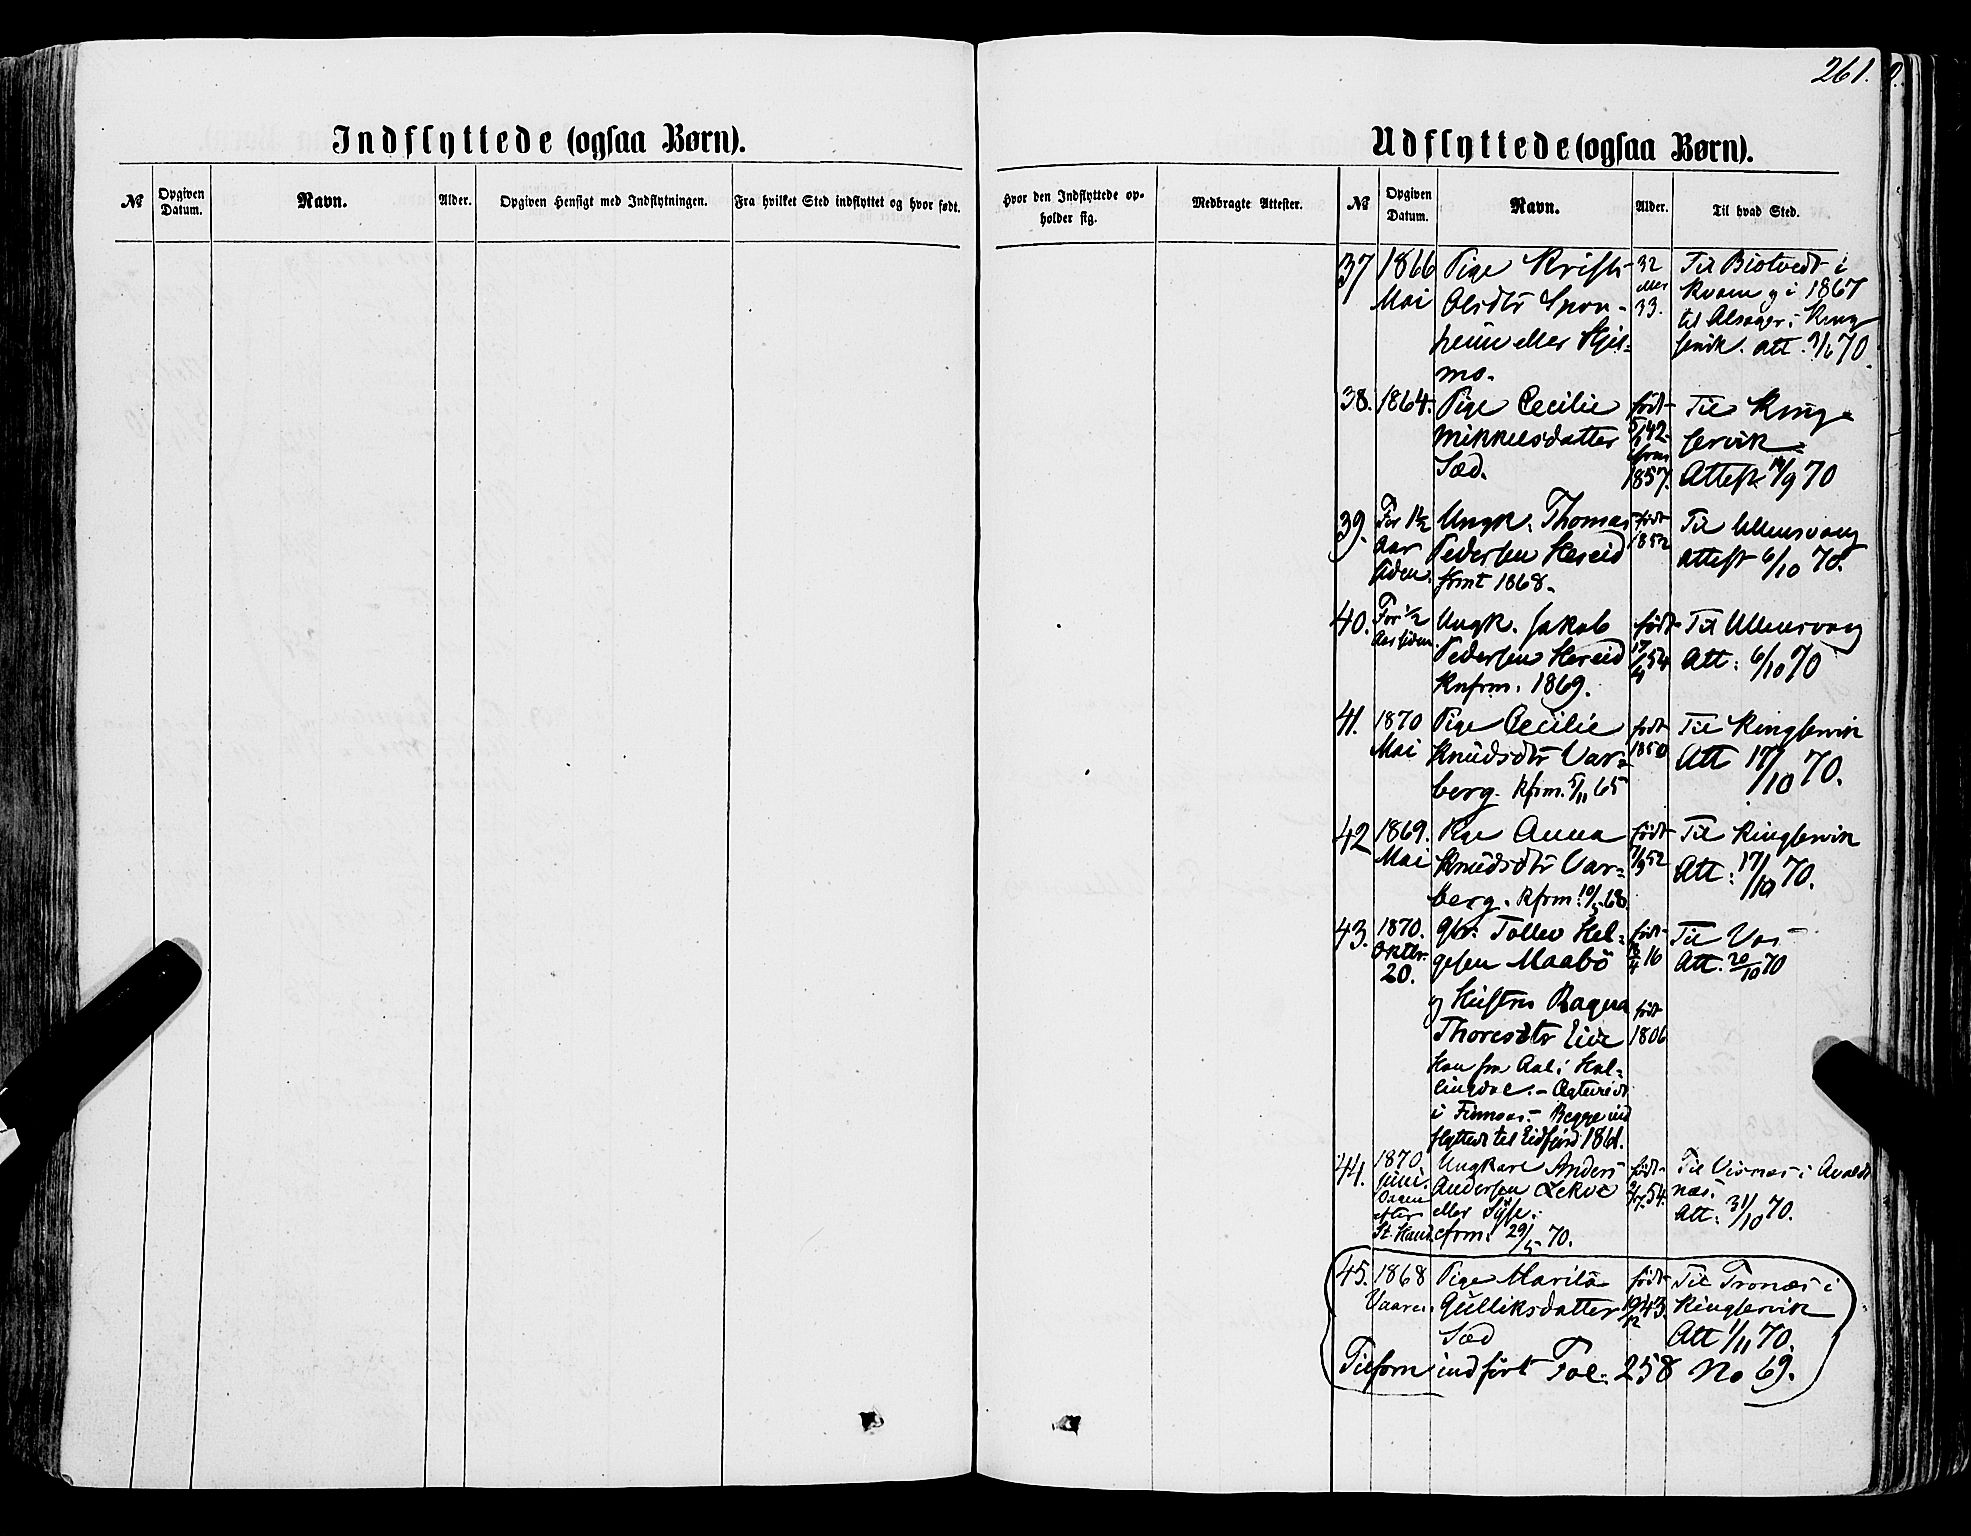 261.
Indflyttede (ogsaa Børn).
№ Opgiven Datum. Navn. Alder. Opgiven Hensigt med Indflytningen. Fra hvilket Sted indflyttet og hvor født.
Hvor den Indflyttede opholder sig. Medbragte Attester.
Udflyttede (ogsaa Børn).
№ Opgiven Datum. Navn. Alder. Til hvad Sted.
37 1866 Pige Kristi 32 Til Biotvedt i
Mai Olsdtr Spon- eller Kvam og i 1867
heim eller Hjel- 33. til Alsager i King
mo. servik. Att. 3/6 70.
38. 1864. Pige Cecilie født Til King-
Mikkelsdatter 5/1 42 servik
Sæd. cfrm 1857. Attest 14/9 70
39. For 1½ Ungk. Thomas født Til Ullensvang
Aar Pedersen Hereid 1852 Attest 6/10 70.
siden. frmt 1868.
40. For ½ Ungk. Jakob født Til Ullensvang
Aar siden Pedersen Hereid 17/4 54 Att: 6/10 70
Knfrm. 1869.
41. 1870 Pige Cecilie født Til Kingservik
Mai Knudsdtr Var- 1850 Att 17/10 70.
berg. Kfrm. 5/11 65
42 1869. Pige Anna født Til Kingservik
Mai Knudsdtr Var- 7/3 52 Att: 17/10 70.
berg. Kfrm. 10/5 68.
43. 1870. Gbr: Tollev Hel- født Til Vos
Oktbr. gesen Maabö /4 16 Att. 20/10 70
20.
og Hustru Ragna født
Thoresdtr Eide 1806
Han fra Aal i Hal-
lingdal. - Ægteviet
i Finnaas. - Begge ind
flyttet til Eidfjord 1861.
44. 1870. Ungkarl Anders født Til Visnæs i Avalds
Juni. Andersen Lekve 2/7 54. næs.
Dagen eller Syse. Att: 31/10 70.
efter
St. Hans. cfrm. 29/5 70.
45. 1868 Pige Marita født Til Tronæs i
Vaaren. Gulliksdatter 19/12 43. Kingservik
Sæd Att 1/11 70.
Tilforn indført Fol. 258 No 69.